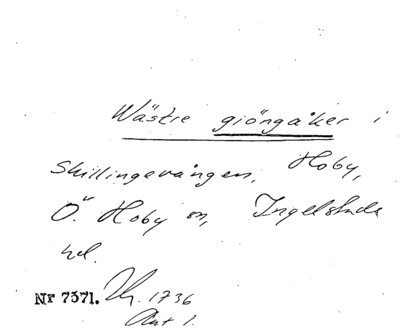 Wästre giöngaåker i
Skillingevången, Hoby,
Ö. Hoby sn, Ingelstads
hd.
Nr 7371. 1736
Akt 1.